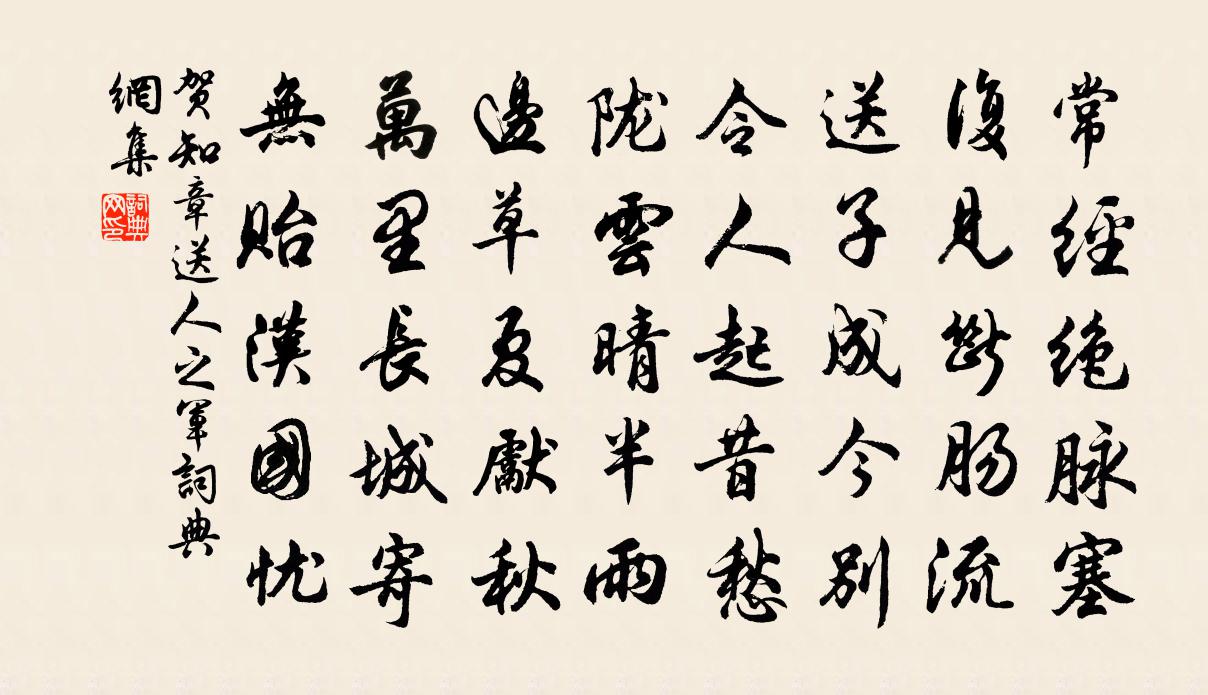 常經绝脉塞
復見断肠流
送子成今别
令人起昔愁
陇雲晴半雨
邊草夏獻秋
萬里長城寄
無貽漢國忧
贺知章送人之军詞典
網集
詞典网印